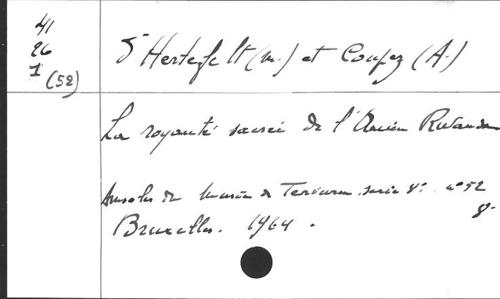 41
26
1 (52)
D'Hertefelt (m.) et Coupez (A.)
La royauté sacrée de l'Ancien Rwanda
Annales du Musée de Tervuren. serie 8° n° 52
8°
Bruxelles. 1964.